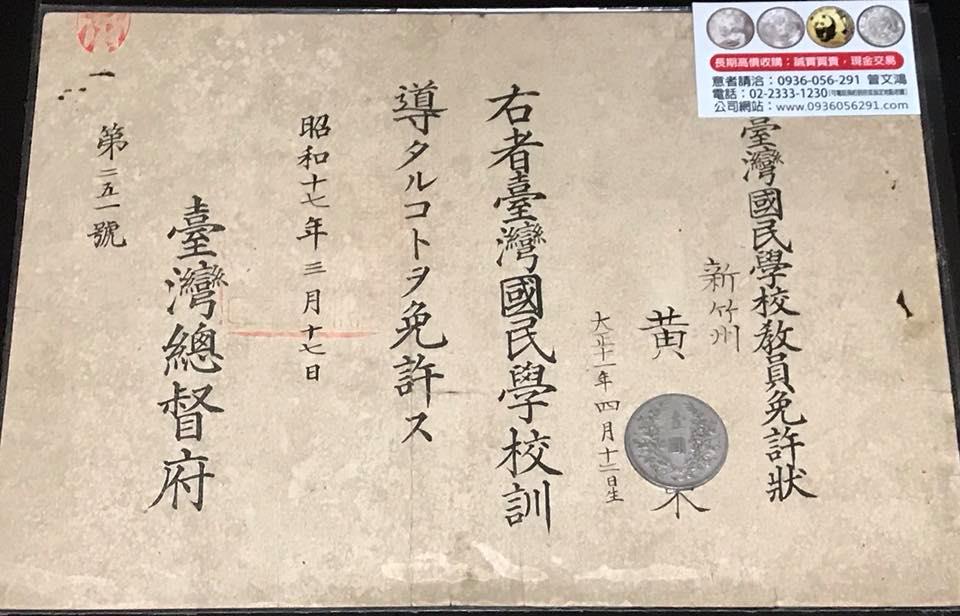 臺灣國民學校教員免許狀
新竹州
黃
大正十一年四月十二日生
右者臺灣國民學校訓
導タルコトヲ免許ス
昭和十七年三月十七日
臺灣總督府
第二五一號
長期高價收購：誠實買賣，現金交易
意者請洽：0936-056-291 曾文鴻
電話：02-2333-1230
公司網站：www.0936056291.com
壹圓